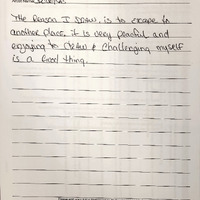 The Reason I Draw, is to escape in
another place, it is very peaceful and
enjoying to Draw & Challenging myself
is a Good thing.